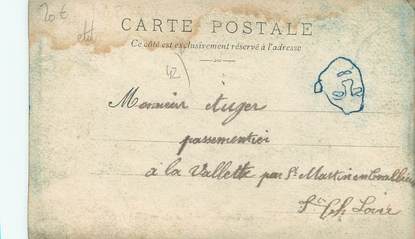 20 €
etd
CARTE POSTALE
Ce côté est exclusivement réservé à l'adresse
42
Monsieur Auger
passementier
à la Vallette par St Martin en
Loire